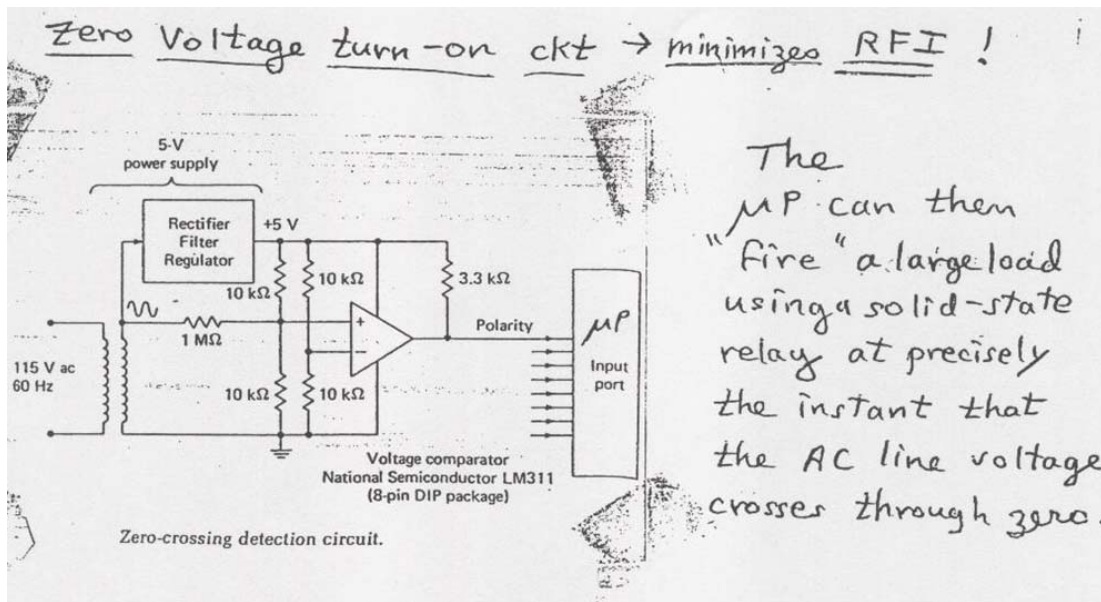 Zero Voltage turn-on ckt → minimizes RFI !
5-V
power supply
Rectifier
Filter
Regulator
+5 V
10 kΩ
10 kΩ
3.3 kΩ
1 MΩ
+
−
Polarity
μP
Input
port
115 V ac
60 Hz
10 kΩ
10 kΩ
Voltage comparator
National Semiconductor LM311
(8-pin DIP package)
Zero-crossing detection circuit.
The
μP can then
"fire" a large load
using a solid-state
relay at precisely
the instant that
the AC line voltage
crosses through zero.